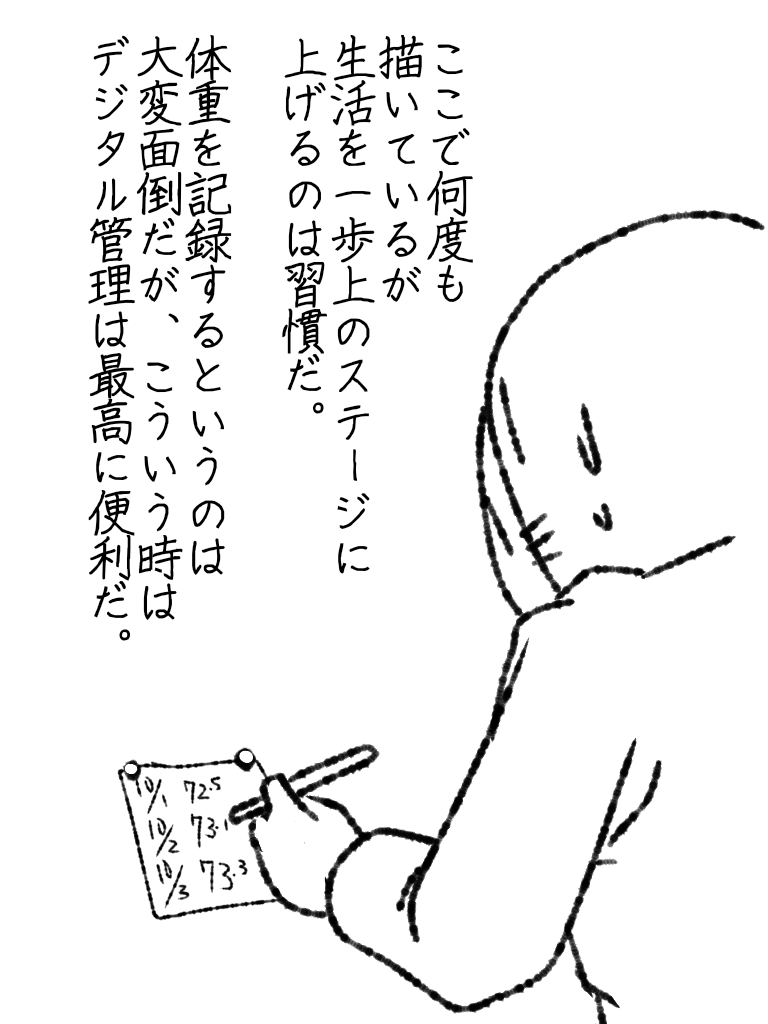 ここで何度も
描いているが
生活を一歩上のステージに
上げるのは習慣だ。
体重を記録するというのは
大変面倒だが、こういう時は
デジタル管理は最高に便利だ。
10/1 72.5
10/2 73.1
10/3 73.3